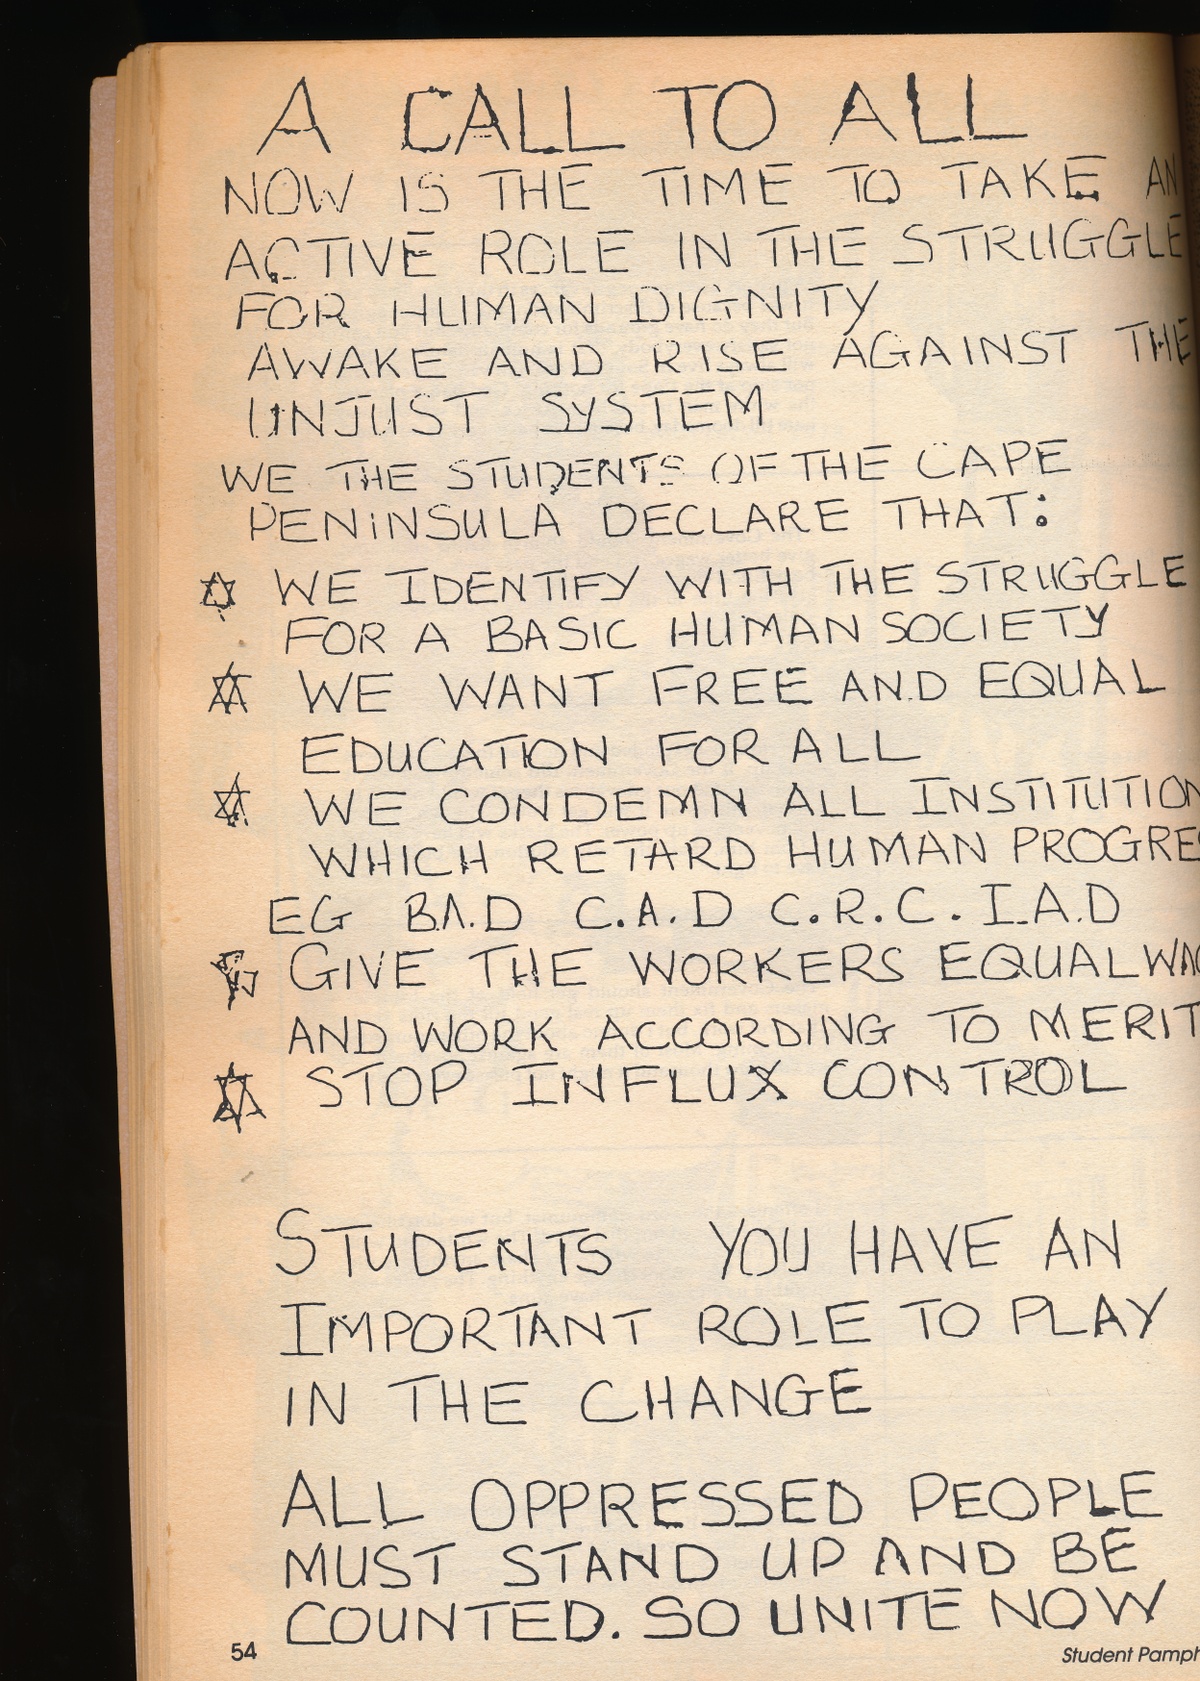 A CALL TO ALL
NOW IS THE TIME TO TAKE AN
ACTIVE ROLE IN THE STRUGGLE
FOR HUMAN DIGNITY
AWAKE AND RISE AGAINST THE
UNJUST SYSTEM
WE THE STUDENTS OF THE CAPE
PENINSULA DECLARE THAT:
WE IDENTIFY WITH THE STRUGGLE
FOR A BASIC HUMAN SOCIETY
WE WANT FREE AND EQUAL
EDUCATION FOR ALL
WE CONDEMN ALL INSTITUTION
WHICH RETARD HUMAN PROGRES
EG B.A.D C.A.D C.R.C. I.A.D
GIVE THE WORKERS EQUAL WAG
AND WORK ACCORDING TO MERIT
STOP INFLUX CONTROL
STUDENTS YOU HAVE AN
IMPORTANT ROLE TO PLAY
IN THE CHANGE
ALL OPPRESSED PEOPLE
MUST STAND UP AND BE
COUNTED. SO UNITE NOW
54
Student Pamph